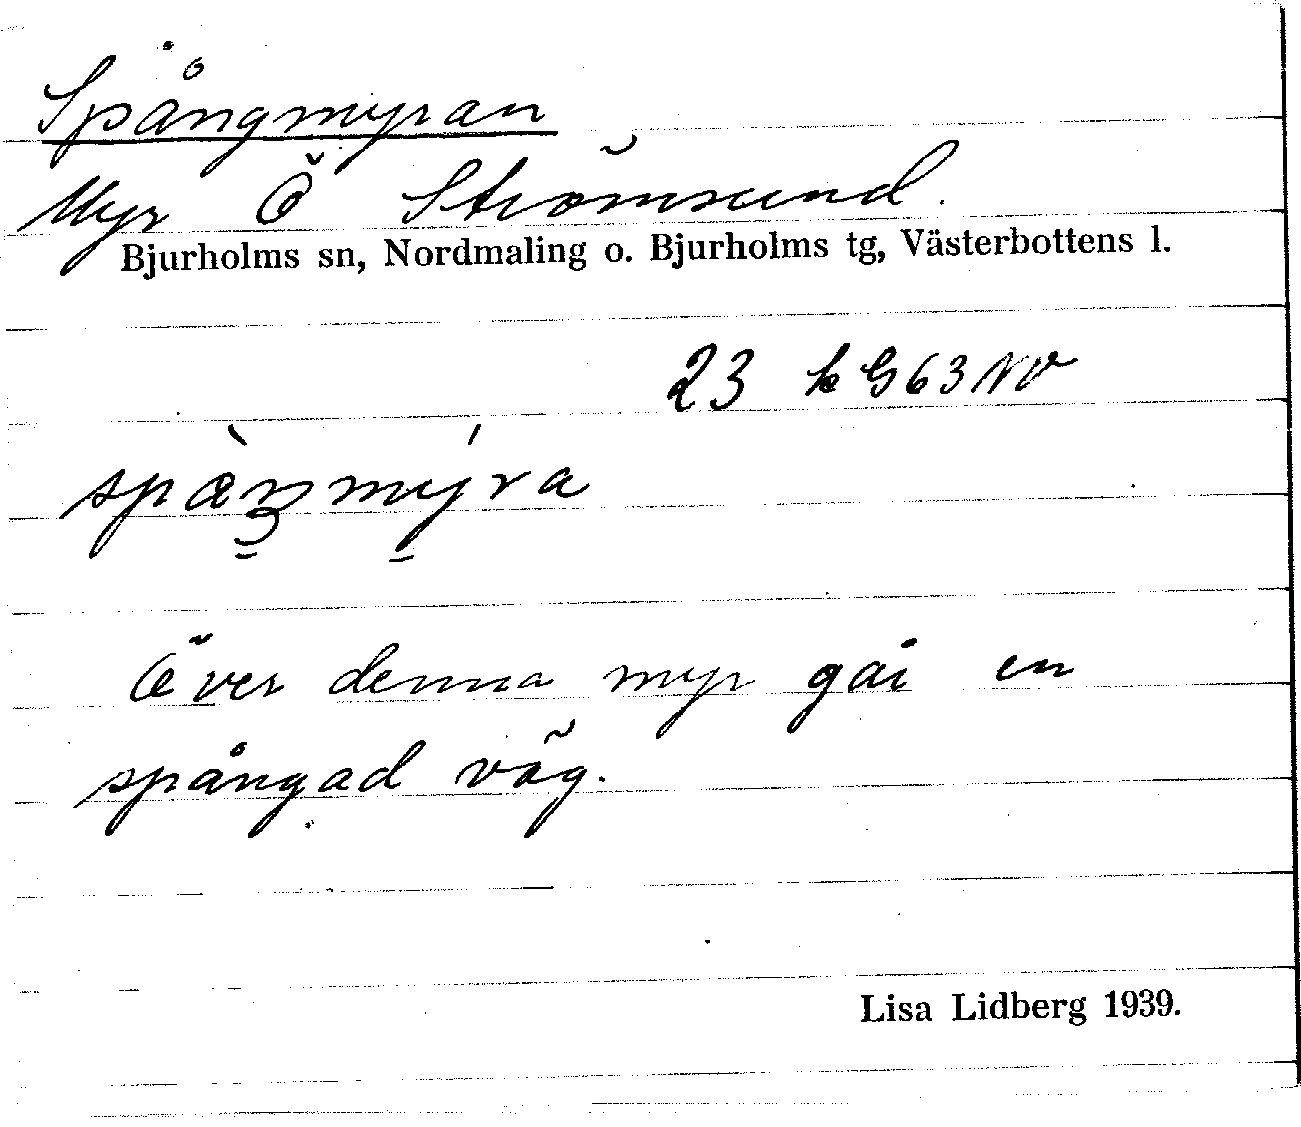 Spångmyran
Myr Ö Strömsund.
Bjurholms sn, Nordmaling o. Bjurholms tg, Västerbottens l.
23 k G63 NV
spæ̀ŋmýra
Över denna myr går en
spångad väg.
Lisa Lidberg 1939.